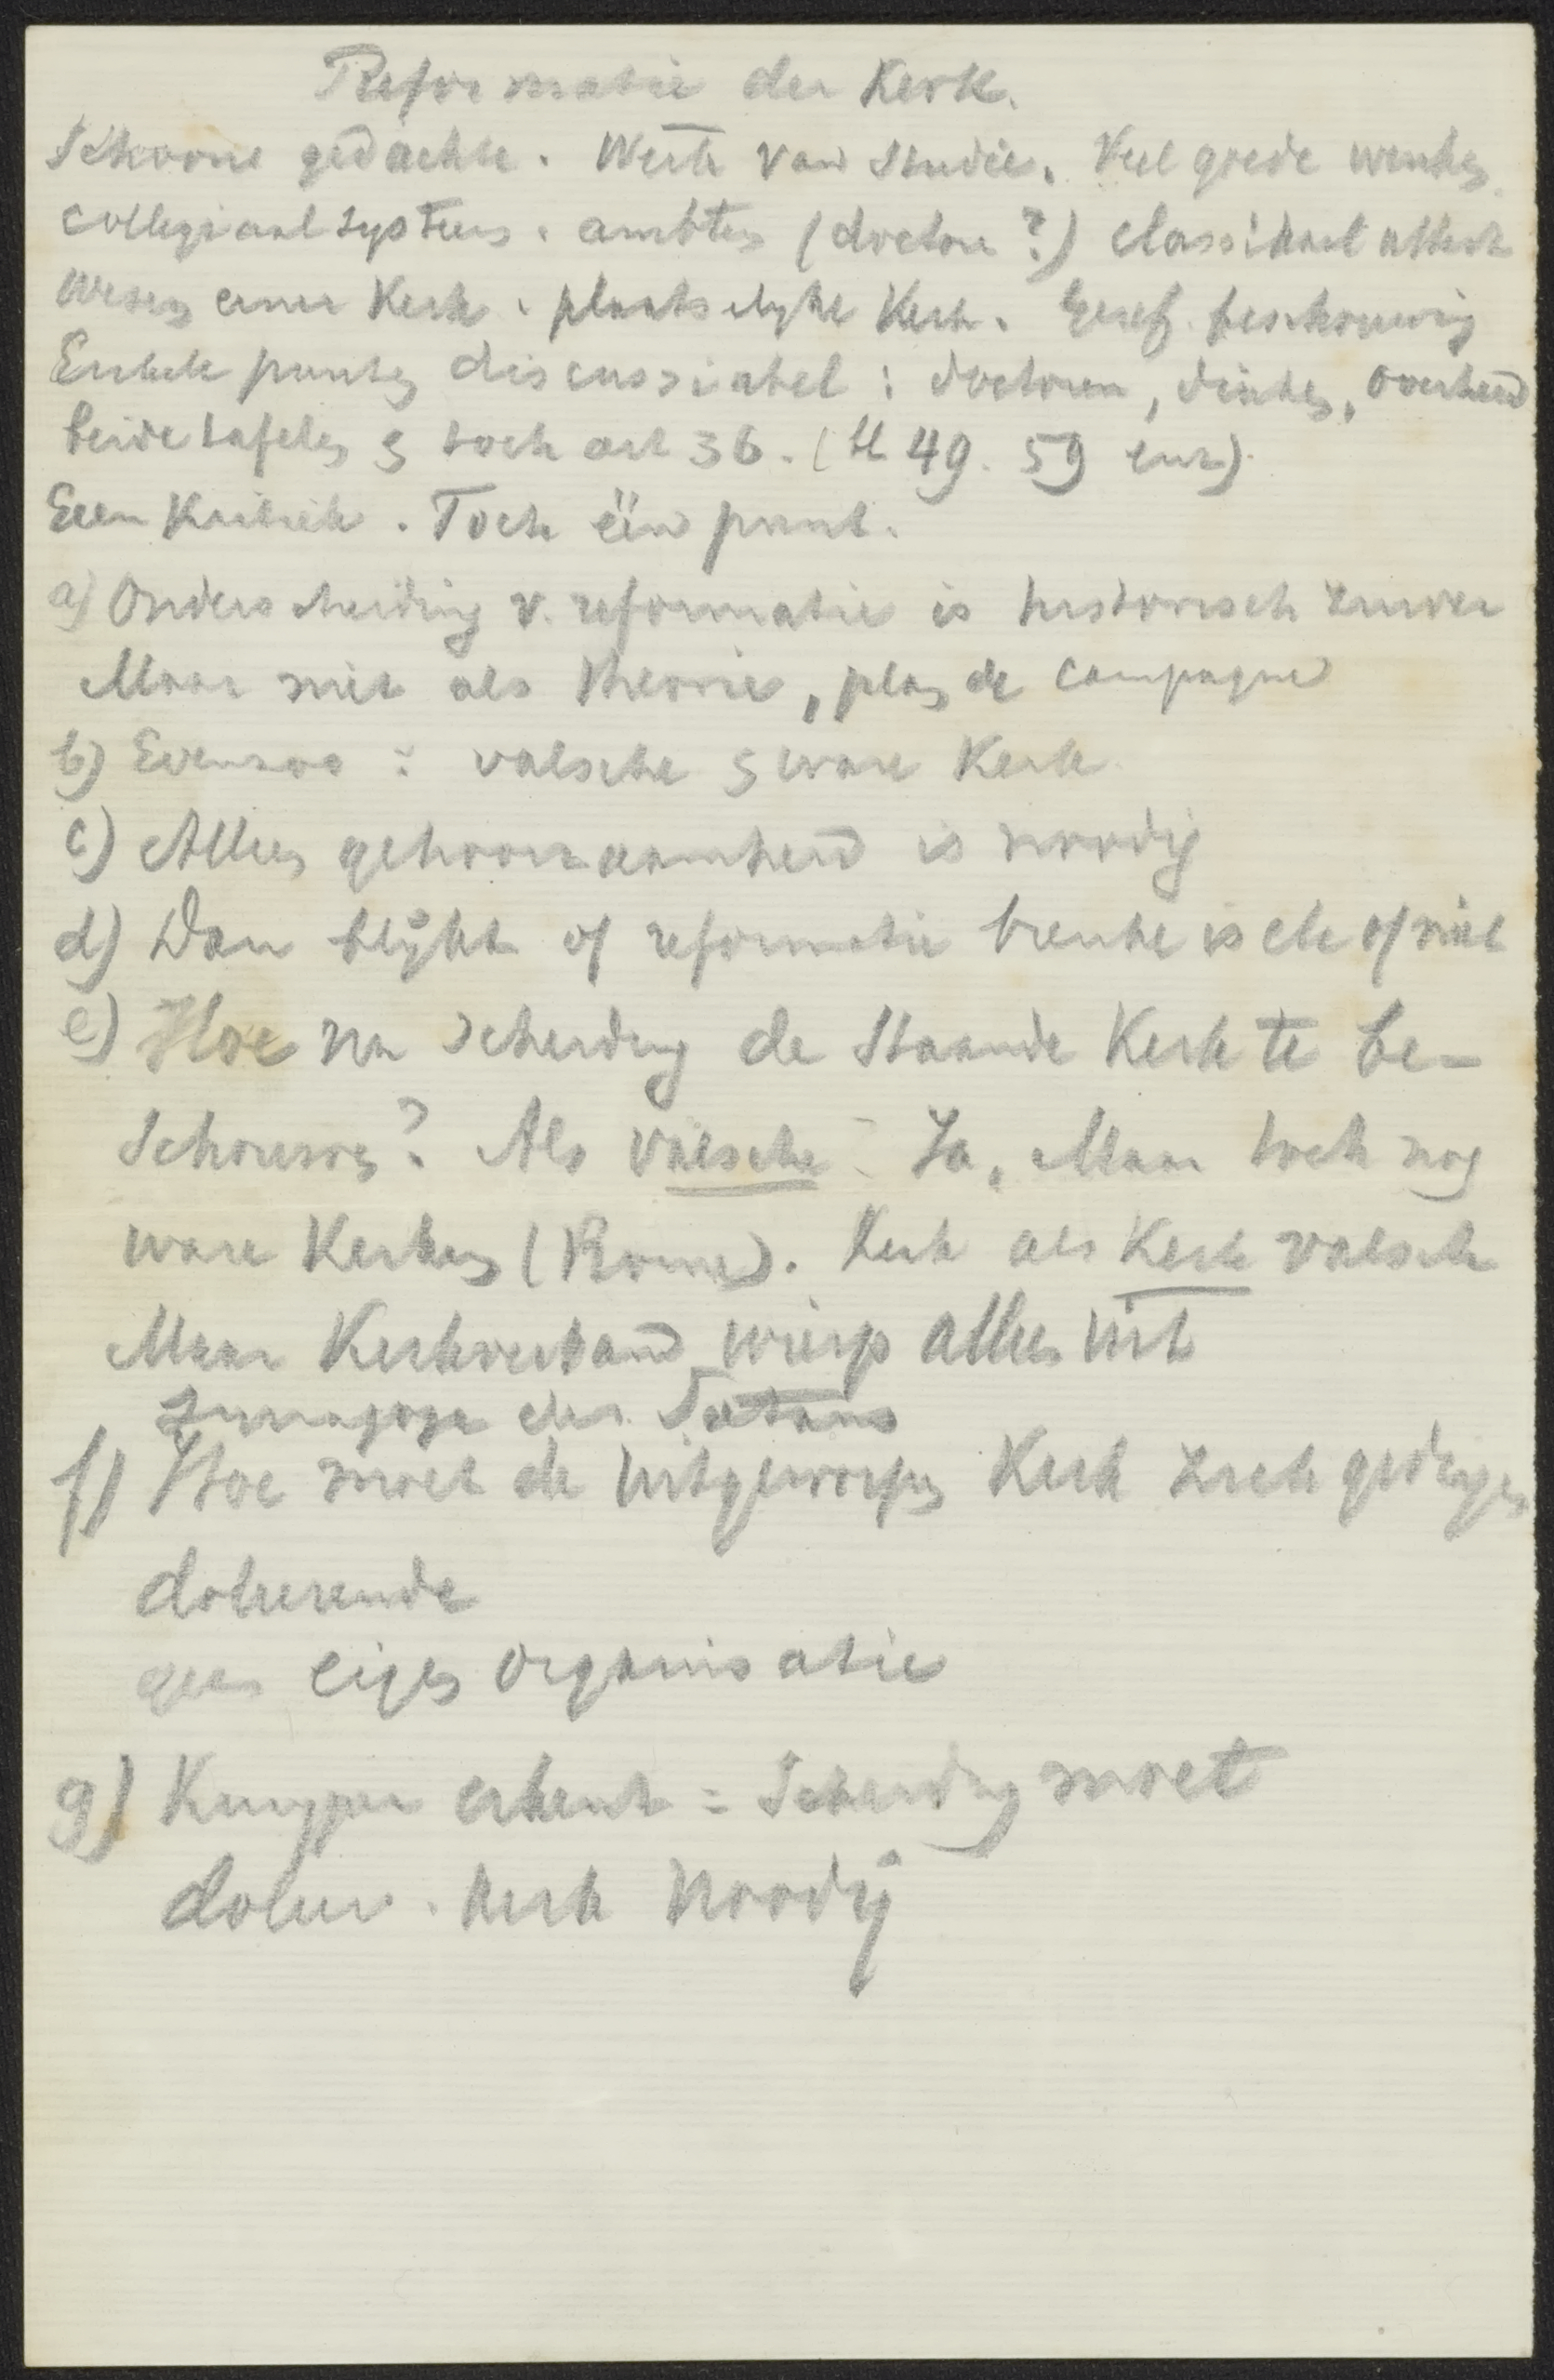 Reformatie der Kerk.
Schoone gedachte. Werk van studie. Veel goede wenken
collegiaal systeem. ambten (doctore?) classikaal attest
Wezen eener Kerk. plaatselijke Kerk. Geref. beschouwing
Enkele punten discussiabel: doctoren, diaken, overheid
beide tafelen & toch art 36. (bl 49. 59 enz).
Geen Kritiek. Toch één punt.
a) Onderscheiding v. reformatie is historisch zuiver
Maar niet als theorie, plan de campagne
b) Evenzoo: valsche & ware Kerk
c) Alleen gehoorzaamheid is noodig
d) Dan blijkt of reformatie breuke is etc of niet
e) Hoe na scheiding de staande Kerk te be-
schouwen? Als valsche. Ja, Maar toch nog
ware Kerken (Rome). Kerk als Kerk valsch
Maar Kerkverband wierp alles uit
Synagoge des Satans
f) Hoe moet de uitgeworpen Kerk zich gedragen
doleerende
geen eigen organisatie
g) Kuyper erkent = Scheiding moet
doleer. Kerk noodig